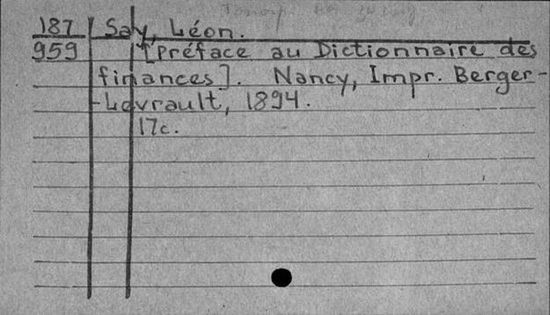 187 Say, Léon.
959 [Préface au Dictionnaire des
finances]. Nancy, Impr. Berger-
-Levrault, 1894.
17c.